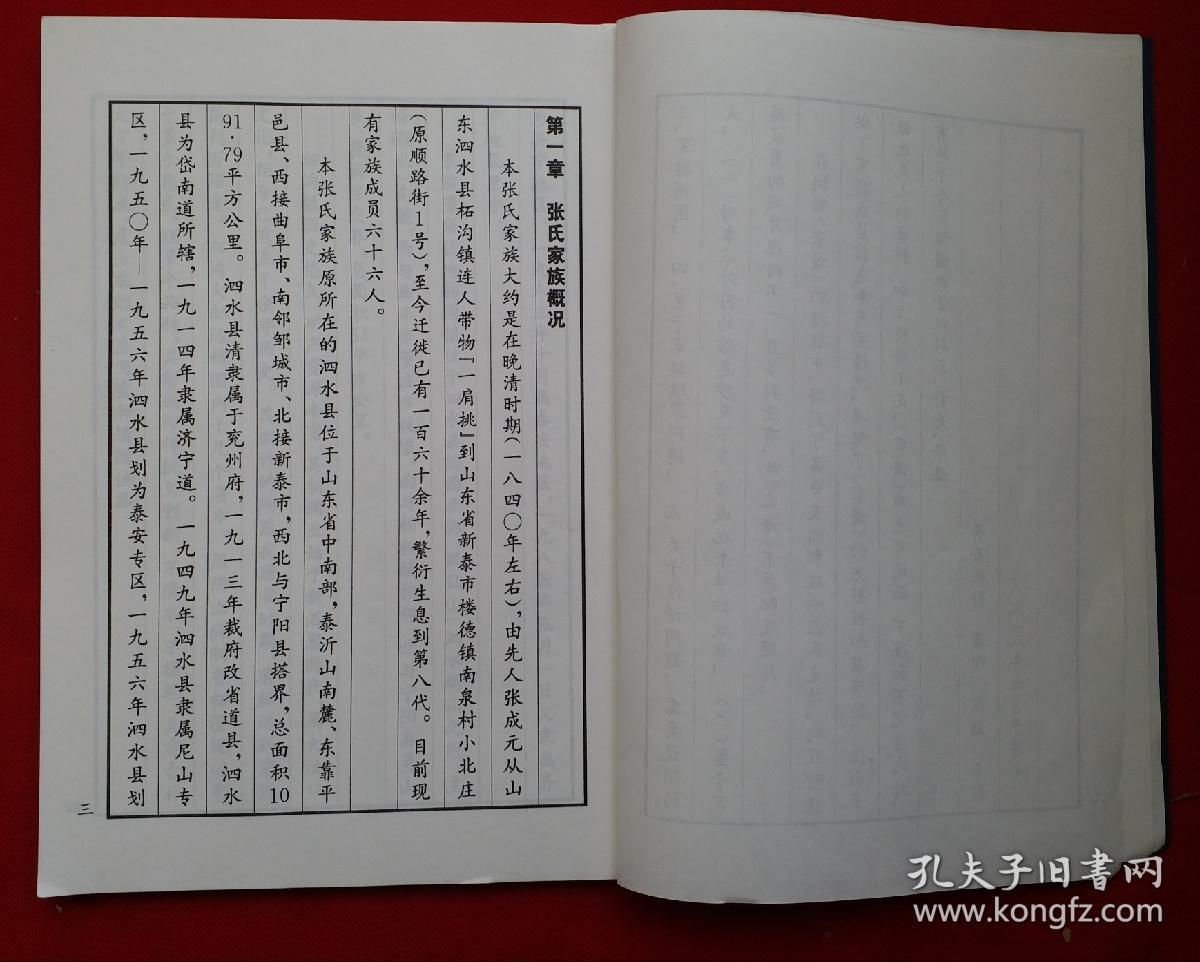 第一章　张氏家族概况
本张氏家族大约是在晚清时期(一八四〇年左右),由先人张成元从山
东泗水县柘沟镇连人带物「一肩挑」到山东省新泰市楼德镇南泉村小北庄
(原顺路街1号),至今迁徙已有一百六十余年,繁衍生息到第八代。目前现
有家族成员六十六人。
本张氏家族原所在的泗水县位于山东省中南部,泰沂山南麓、东靠平
邑县、西接曲阜市、南邻邹城市、北接新泰市,西北与宁阳县搭界,总面积10
91·79平方公里。泗水县清隶属于兖州府,一九一三年裁府改省道县,泗水
县为岱南道所辖,一九一四年隶属济宁道。一九四九年泗水县隶属尼山专
区,一九五〇年—一九五六年泗水县划为泰安专区,一九五六年泗水县划
三
孔夫子旧书网
www.kongfz.com